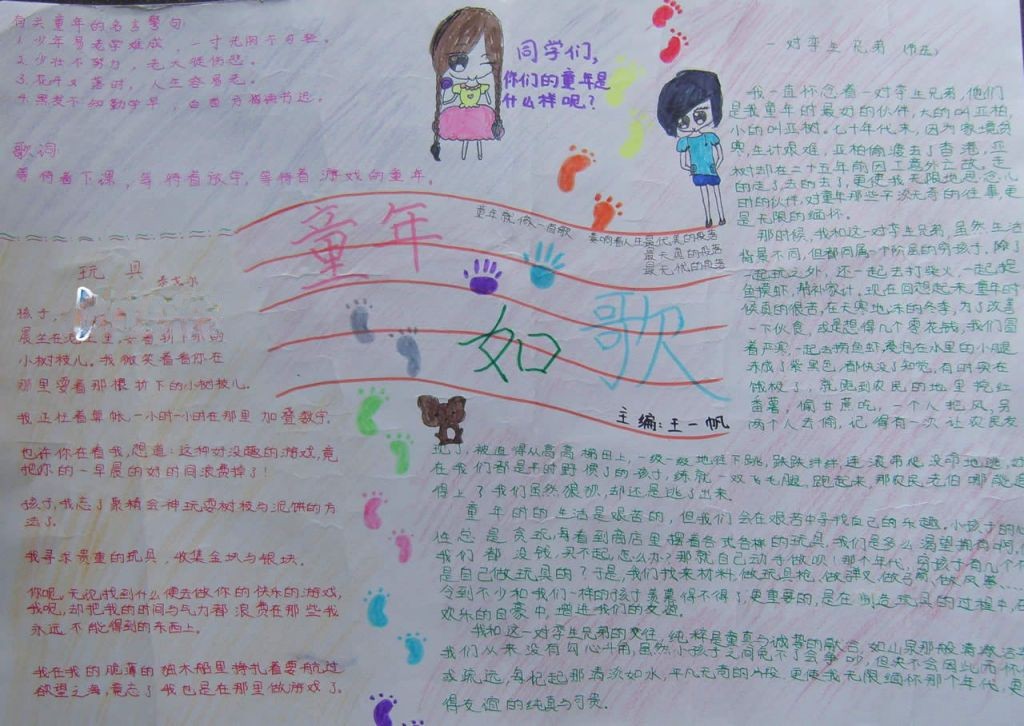 有关童年的名言警句:
1.少年易老学难成，一寸光阴不可轻。
2.少壮不努力，老大徒伤悲。
3.花开又落时，人生容易老。
4.黑发不知勤学早，白首方悔读书迟。
歌词:
等待着下课，等待着放学，等待着游戏的童年。
同学们,
你们的童年是
什么样呢?
童年
如
歌
童年就像一首歌
影响着人生最优美的段落
最天真的段落
最无忧的段落
主编:王一帆
玩具
泰戈尔
孩子,
小树枝儿。我微笑着看你在
那里耍着那根折下的小树枝儿。
我正忙着算帐,一小时一小时在那里加叠数字。
也许你在看我,想道:这种好没趣的游戏,竟
把你的一早晨的好时间浪费掉了!
孩子,我忘了聚精会神玩耍树枝与泥饼的方
法了。
我寻求贵重的玩具,收集金块与银块。
你呢,无论找到什么便去做你的快乐的游戏,
我呢,却把我的时间与气力都浪费在那些我
永远不能得到的东西上。
我在我的脆薄的独木船里挣扎着要航过
欲望之海,竟忘了我也是在那里做游戏了。
一对孪生兄弟
我一直怀念着一对孪生兄弟,他们
是我童年时最好的伙伴,大的叫亚柏,
小的叫亚树。七十年代末,因为家境贫
寒,生计艰难,亚柏偷渡去了香港,亚
树却在二十五年前因工意外亡故,走
的走了,去的去了,更使我无限地思念儿
时的伙伴,对童年那些平淡无奇的往事,更
是无限的缅怀。
那时候,我和这一对孪生兄弟,虽然生活
背景不同,但都同属一个阶层的穷孩子,除了
一起玩之外,还一起去打柴火,一起捉
鱼摸虾,帮补家计。现在回想起来,童年时
候真的很苦,在天寒地冻的冬季,为了改善
一下伙食,或是想得几个零花钱,我们冒
着严寒,一起去捞鱼虾,浸泡在水里的小腿
冻成了紫黑色,都快没了知觉,有时实在
饿极了,就跑到农民的地里挖红
番薯,偷甘蔗吃,一个人把风,另
两个人去偷,记得有一次让农民发
现了,被迫得从高高梯田上,一级一级地往下跳,跌跌绊绊,连滚带爬,没命地逃,好
在我们都是平时野惯了的孩子,练就一双飞毛腿,跑起来,那农民老伯哪能追
得上了我们虽然狼狈,却还是逃了出来。
童年时的生活是艰苦的,但我们会在艰苦中寻找自己的乐趣。小孩子的心
性总是贪玩,每看到商店里摆着各式各样的玩具,我们是多么渴望拥有啊,但
我们都没钱,买不起,怎么办?那就自己动手做呗!那个年代,穷孩子有几个不
是自己做玩具的?于是,我们找来材料,做玩具枪,做弹叉,做弓箭,做风筝……
令到不少和我们一样的孩子羡慕得不得了,更重要的,是在制造玩具的过程中,在
欢乐的自豪中,增进我们的友谊。
我和这一对孪生兄弟的交往,纯粹是童真与诚挚的融合,如山泉那般清澈洁净
我们从来没有勾心斗角,虽然小孩子之间免不了会争吵,但决不会因此而怀恨
或疏远,每忆起那清淡如水,平凡无奇的片段,更使我无限缅怀那个年代,更
得友谊的纯真与可贵。